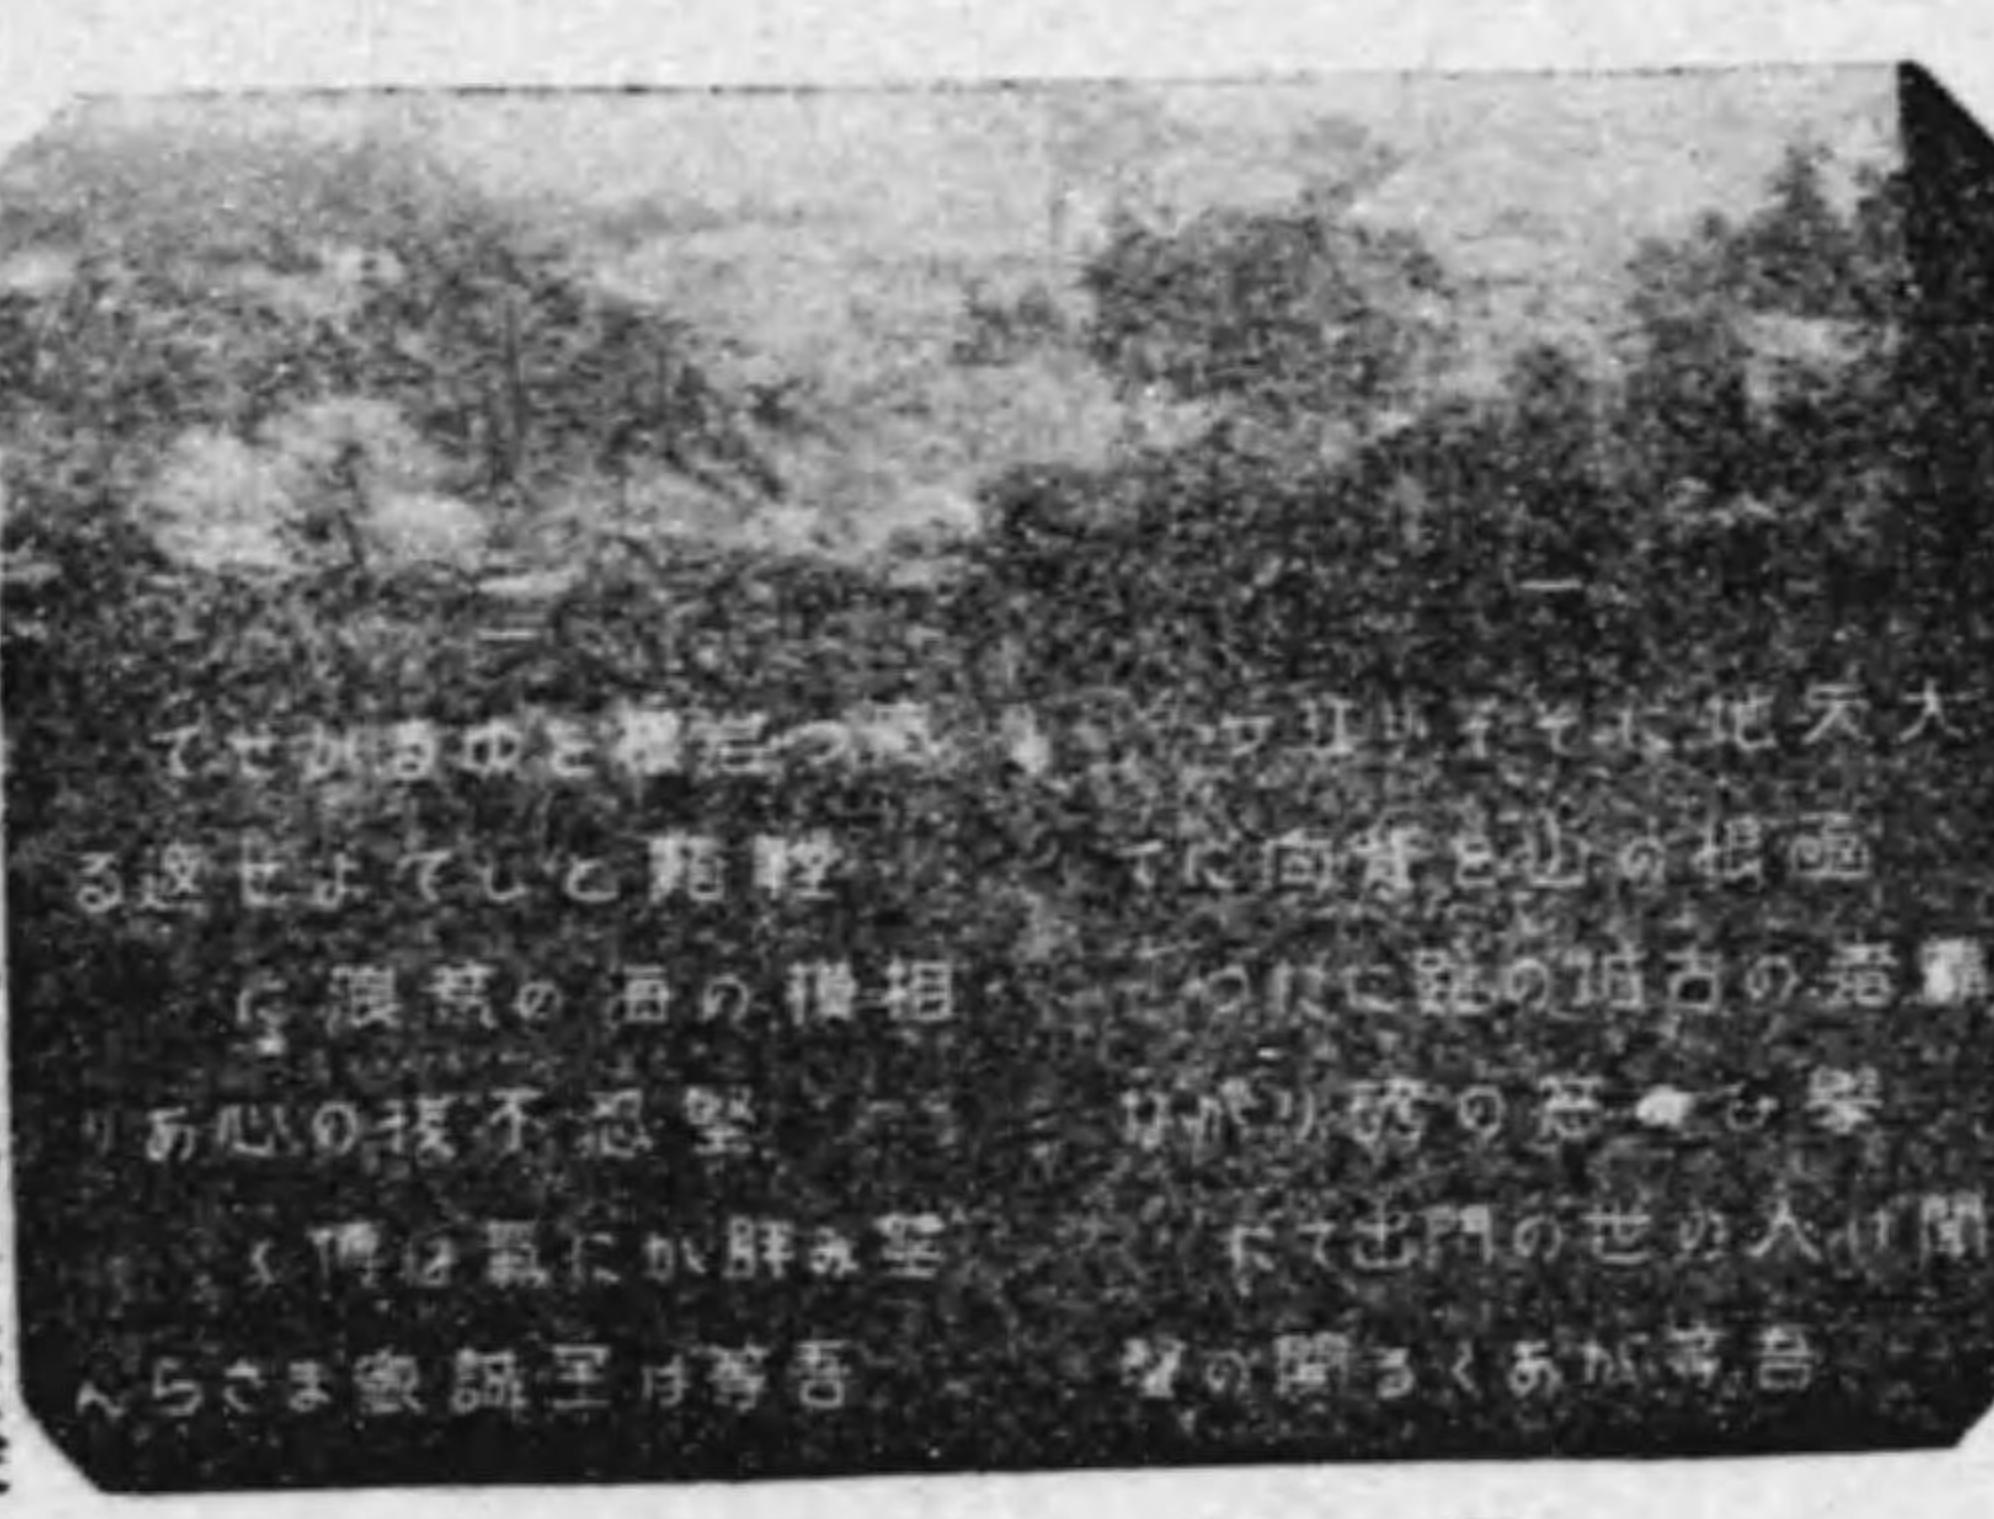 一
大天地にそそり立つ
函根の山を背向にて
覇者の古城の跡にたつ
學びの窓の誇りかな
聞け人の世の門出
吾等があくる鬨の聲
二
つ岩根をゆるがせて
としてよせ返る
相模の海の荒浪に
堅忍不抜の心あり
望み胖かに氣は博く
吾等は至誠まさらん